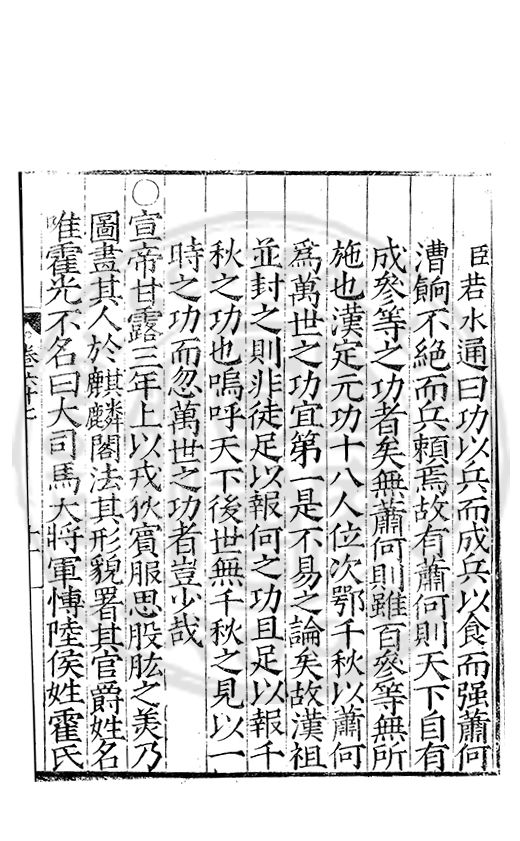 臣若水通曰功以兵而成兵以食而强蕭何
漕餉不絶而兵賴焉故有蕭何則天下自有
成參等之功者矣無蕭何則雖百參等無所
施也漢定元功十八人位次鄂千秋以蕭何
爲萬世之功宜第一是不易之論矣故漢祖
並封之則非徒足以報何之功且足以報千
秋之功也嗚呼天下後世無千秋之見以一
時之功而忽萬世之功者豈少哉
○宣帝甘露三年上以戎狄賓服思股肱之美乃
圖畫其人於麒麟閣法其形貌署其官爵姓名
唯霍光不名曰大司馬大將軍愽陸侯姓霍氏